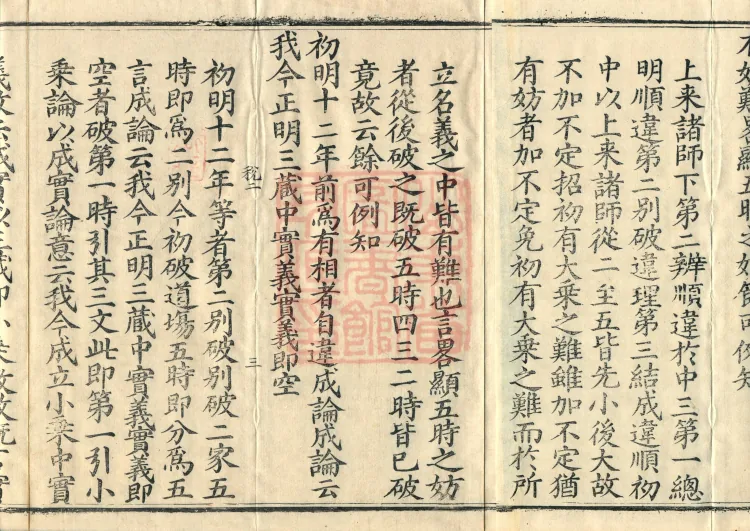 不妨難略顯五時之妨餘可例知
上来諸師下第二辨順違於中三第一總
明順違第二別破違理第三結成違順初
中以上来諸師從二至五皆先小後大故
不加不定招初有大乗之難雖加不定猶
有妨者加不定免初有大乗之難而於所
立名義之中皆有難也言畧顯五時之妨
者從後破之既破五時四三二時皆已破
竟故云餘可例知
初明十二年前爲有相者自違成論成論云
我今正明三蔵中實義實義即空
初明十二年等者第二別破別破二家五
時即爲二別今初破道場五時即分爲五
言成論云我今正明三蔵中實義實義即
空者破第一時引其三文此即第一引小
乗論以成實論意云我今成立小乗中實
三